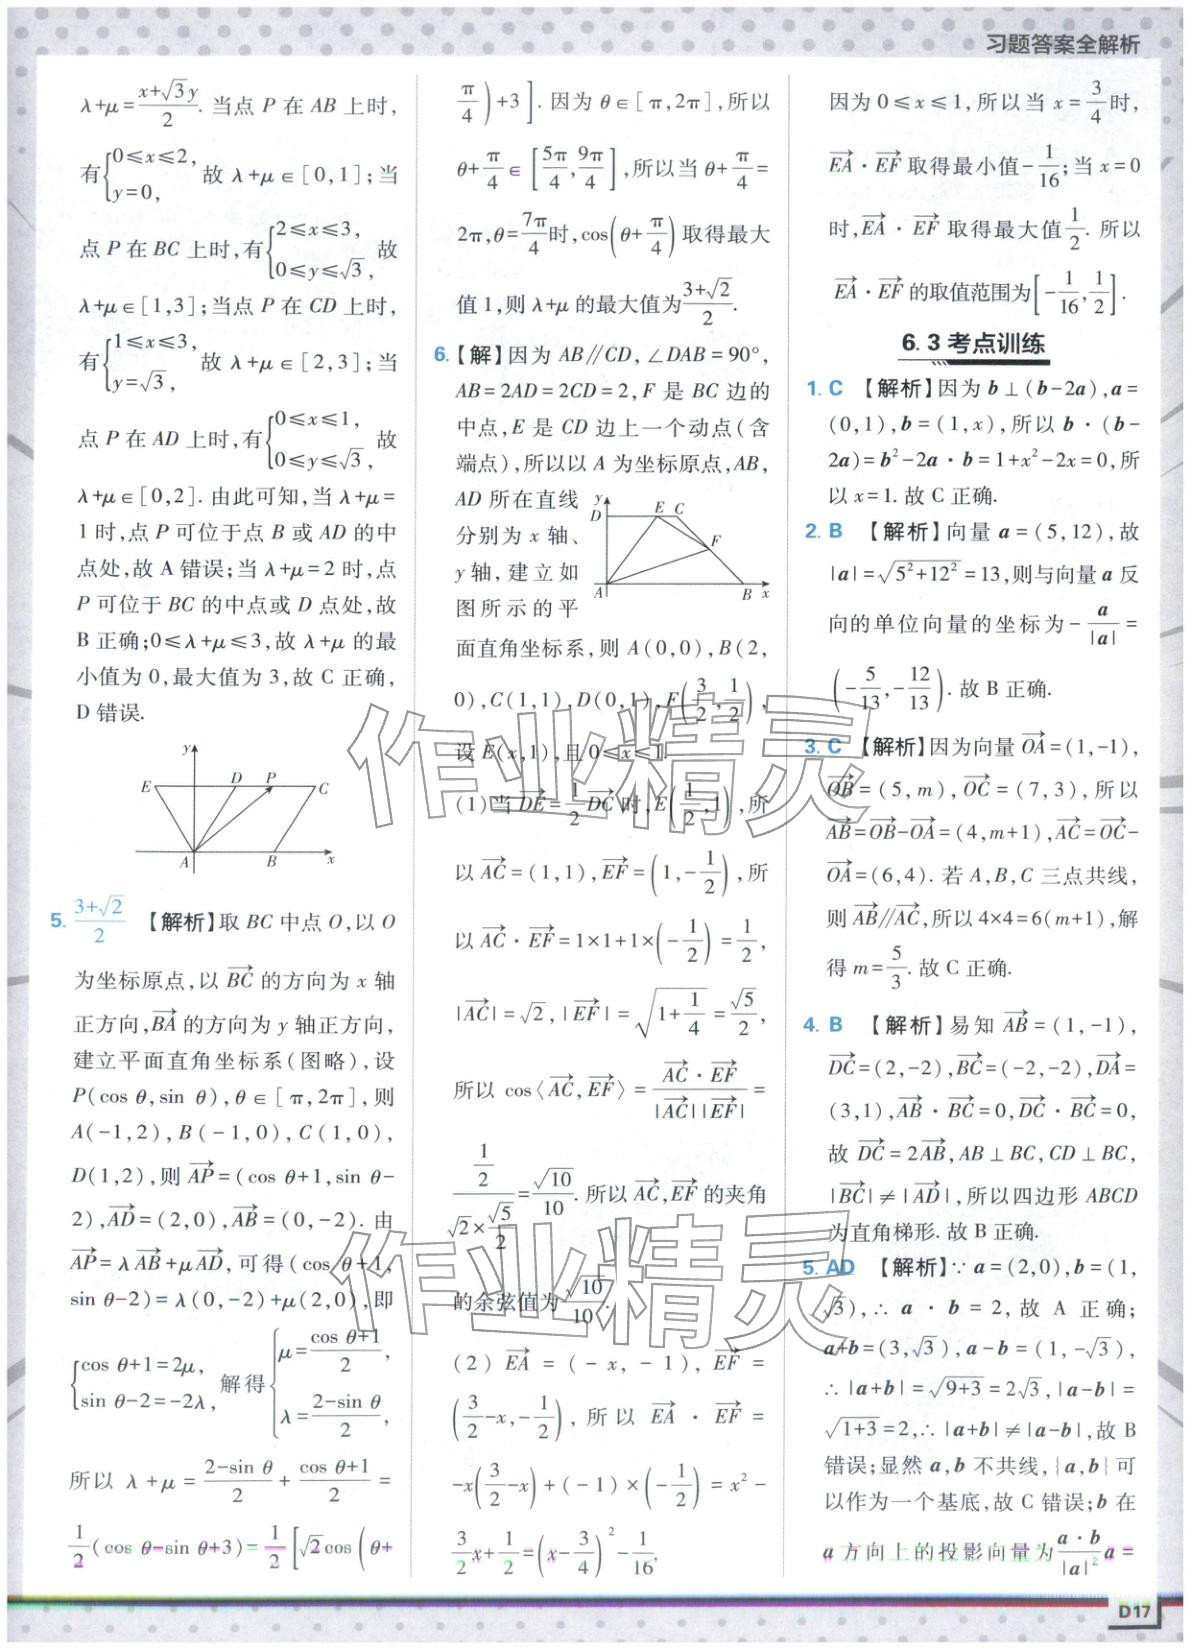 习题答案全解析
λ+μ=(x+√3y)/2. 当点 P 在 AB 上时,
有{0≤x≤2, y=0, 故 λ+μ∈[0,1];当
点 P 在 BC 上时,有{2≤x≤3, 0≤y≤√3, 故
λ+μ∈[1,3];当点 P 在 CD 上时,
有{1≤x≤3, y=√3, 故 λ+μ∈[2,3];当
点 P 在 AD 上时,有{0≤x≤1, 0≤y≤√3, 故
λ+μ∈[0,2]. 由此可知,当 λ+μ=
1 时,点 P 可位于点 B 或 AD 的中
点处,故 A 错误;当 λ+μ=2 时,点
P 可位于 BC 的中点或 D 点处,故
B 正确;0≤λ+μ≤3,故 λ+μ 的最
小值为 0,最大值为 3,故 C 正确,
D 错误.
y
E D P C
A B x
5. (3+√2)/2 【解析】取 BC 中点 O,以 O
为坐标原点,以 BC→ 的方向为 x 轴
正方向,BA→ 的方向为 y 轴正方向,
建立平面直角坐标系(图略),设
P(cos θ,sin θ),θ∈[π,2π],则
A(-1,2),B(-1,0),C(1,0),
D(1,2),则 AP→=(cos θ+1,sin θ-
2),AD→=(2,0),AB→=(0,-2). 由
AP→=λAB→+μAD→,可得(cos θ+1,
sin θ-2)=λ(0,-2)+μ(2,0),即
{cos θ+1=2μ, sin θ-2=-2λ, 解得{μ=(cos θ+1)/2, λ=(2-sin θ)/2,
所以 λ+μ=(2-sin θ)/2+(cos θ+1)/2=
1/2(cos θ-sin θ+3)=1/2[√2cos(θ+
π/4)+3]. 因为 θ∈[π,2π],所以
θ+π/4∈[5π/4,9π/4],所以当 θ+π/4=
2π,θ=7π/4时,cos(θ+π/4)取得最大
值 1,则 λ+μ 的最大值为(3+√2)/2.
6.【解】因为 AB∥CD,∠DAB=90°,
AB=2AD=2CD=2,F 是 BC 边的
中点,E 是 CD 边上一个动点(含
端点),所以以 A 为坐标原点,AB,
AD 所在直线
分别为 x 轴、
y 轴,建立如
图所示的平
y
D E C
F
A B x
面直角坐标系,则 A(0,0),B(2,
0),C(1,1),D(0,1),F(3/2,1/2),
设 E(x,1),且 0≤x≤1.
(1)当DE→=1/2DC→时,E(1/2,1),所
以 AC→=(1,1),EF→=(1,-1/2),所
以 AC→·EF→=1×1+1×(-1/2)=1/2,
|AC→|=√2,|EF→|=√(1+1/4)=√5/2,
所以 cos〈AC→,EF→〉=(AC→·EF→)/(|AC→||EF→|)=
(1/2)/(√2×√5/2)=√10/10. 所以 AC→,EF→ 的夹角
的余弦值为√10/10.
(2) EA→=(-x,-1),EF→=
(3/2-x,-1/2),所以 EA→·EF→=
-x(3/2-x)+(-1)×(-1/2)=x²-
3/2x+1/2=(x-3/4)²-1/16,
因为 0≤x≤1,所以当 x=3/4时,
EA→·EF→ 取得最小值-1/16;当 x=0
时,EA→·EF→ 取得最大值1/2. 所以
EA→·EF→ 的取值范围为[-1/16,1/2].
6.3 考点训练
1. C 【解析】因为 b⊥(b-2a),a=
(0,1),b=(1,x),所以 b·(b-
2a)=b²-2a·b=1+x²-2x=0,所
以 x=1. 故 C 正确.
2. B 【解析】向量 a=(5,12),故
|a|=√(5²+12²)=13,则与向量 a 反
向的单位向量的坐标为-a/|a|=
(-5/13,-12/13). 故 B 正确.
3. C 【解析】因为向量OA→=(1,-1),
OB→=(5,m),OC→=(7,3),所以
AB→=OB→-OA→=(4,m+1),AC→=OC→-
OA→=(6,4). 若 A,B,C 三点共线,
则 AB→∥AC→,所以 4×4=6(m+1),解
得 m=5/3. 故 C 正确.
4. B 【解析】易知 AB→=(1,-1),
DC→=(2,-2),BC→=(-2,-2),DA→=
(3,1),AB→·BC→=0,DC→·BC→=0,
故 DC→=2AB→,AB⊥BC,CD⊥BC,
|BC→|≠|AD→|,所以四边形 ABCD
为直角梯形. 故 B 正确.
5. AD 【解析】∵a=(2,0),b=(1,
√3),∴a·b=2,故 A 正确;
a+b=(3,√3),a-b=(1,-√3),
∴|a+b|=√(9+3)=2√3,|a-b|=
√(1+3)=2,∴|a+b|≠|a-b|,故 B
错误;显然 a,b 不共线,{a,b}可
以作为一个基底,故 C 错误;b 在
a 方向上的投影向量为(a·b)/|a|² a=
作业精灵
作业精灵
D17